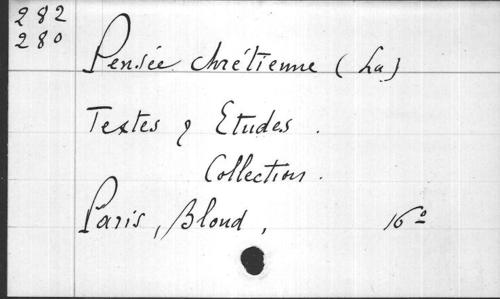 282
280
Pensée chrétienne (La)
Textes & Etudes.
Collection.
Paris, Bloud, 16º